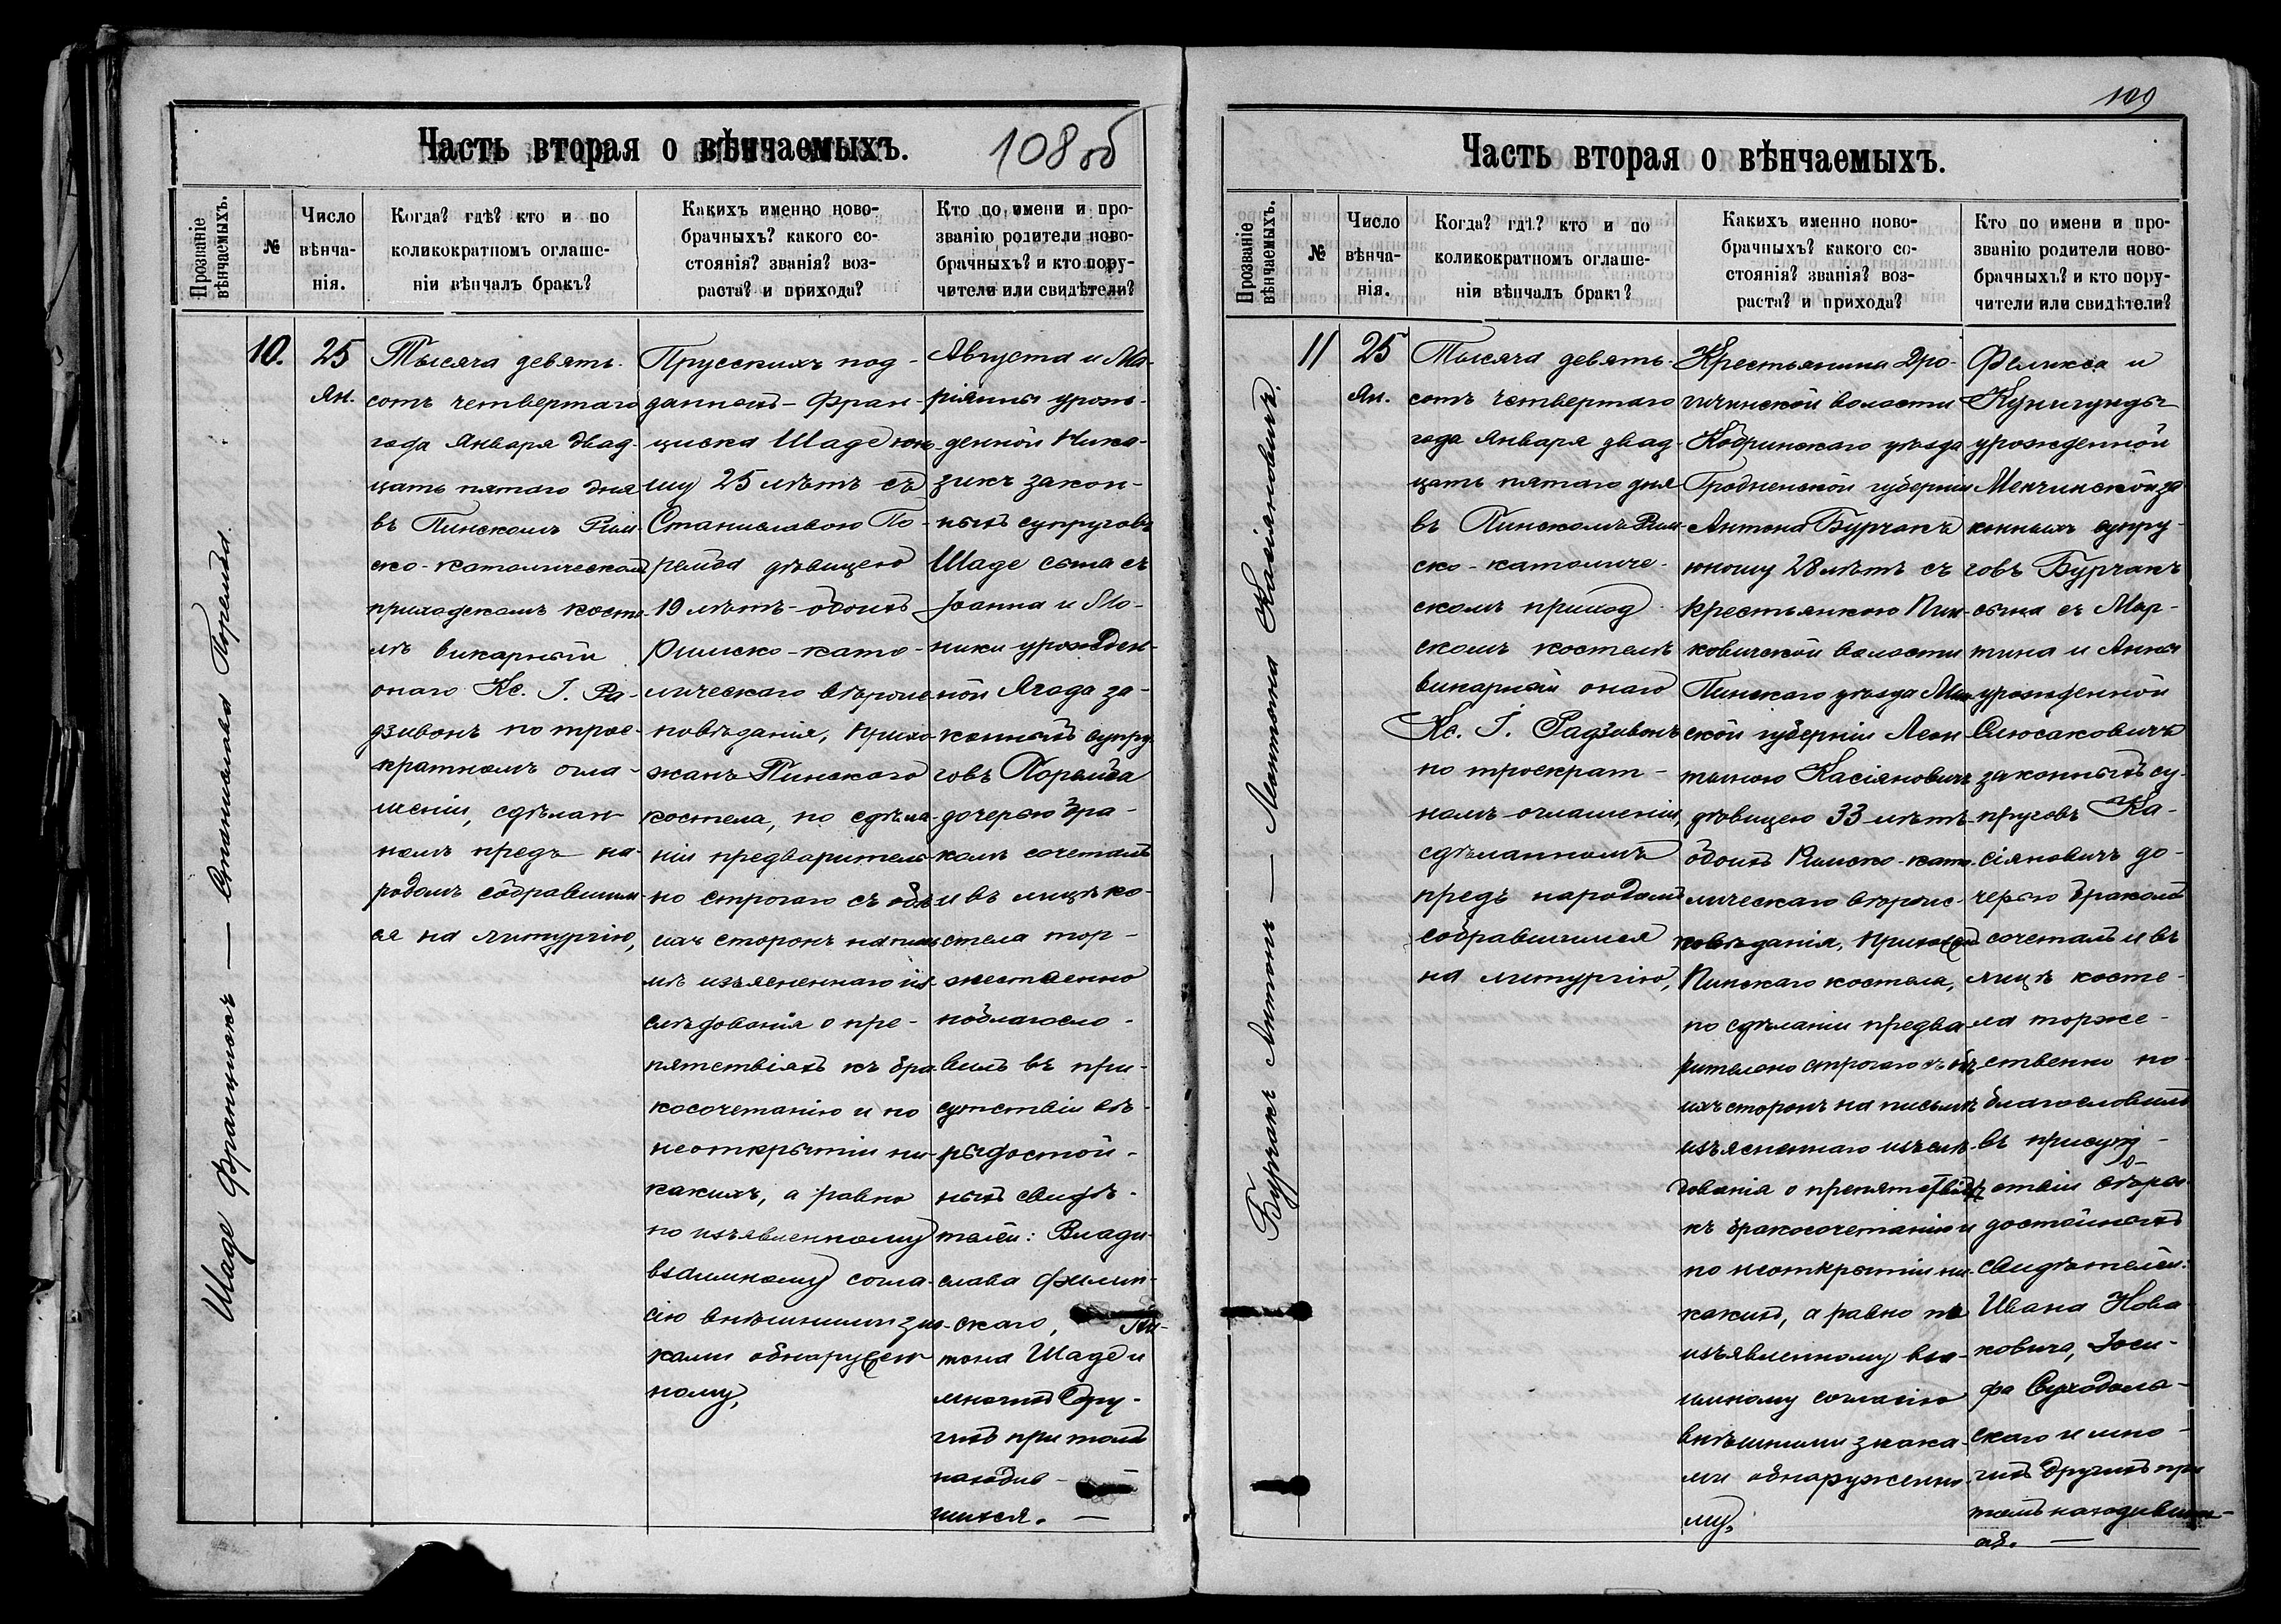 Часть вторая о вѣнчаемыхъ.
108 об
Прозваніе вѣнчаемыхъ.
№
Число вѣнча-нія.
Когда? гдѣ? кто и по
коликократномъ оглаше-
ніи вѣнчалъ бракъ?
Какихъ именно ново-
брачныхъ? какого со-
стоянія? званія? воз-
раста? и прихода?
Кто по имени и про-
званію родители ново-
брачныхъ? и кто пору-
чители или свидѣтели?
Шаде Францискъ — Станислава Порейда.
10.
25
Ян.
Тысяча девять-
сотъ четвертаго
года Января двад-
цать пятаго дня
въ Пинскомъ Рим-
ско-католическомъ
приходскомъ косте-
лѣ викарный
онаго Кс. І. Ра-
дзивонъ по трое-
кратномъ огла-
шеніи, сдѣлан-
номъ предъ на-
родомъ собравшим-
ся на литургію,
Прусскихъ под-
данныхъ - Фран-
циска Шаде юно-
шу 25 лѣтъ съ
Станиславою По-
рейда дѣвицею
19 лѣтъ - обоихъ
Римско-като-
лическаго вѣроис-
повѣданія, прихо-
жанъ Пинскаго
костела, по сдѣла-
ніи предваритель-
но строгаго съ обѣ-
ихъ сторонъ на пись-
мѣ изъясненнаго из-
слѣдованія о пре-
пятствіяхъ къ бра-
косочетанію и по
неоткрытіи ни-
какихъ, а равно
по изъявленному
взаимному согла-
сію внѣшними зна-
ками обнаружен-
ному,
Августа и Ма-
ріянны урож-
денной Ника-
зикъ закон-
ныхъ супруговъ
Шаде сына съ
Іоанна и Мо-
ники урожден-
ной Ягода за-
конныхъ супру-
говъ Порейда
дочерью бра-
комъ сочеталъ
и въ лицѣ ко-
стела тор-
жественно
поблагосло-
вилъ въ при-
сутствіи вѣ-
рыдостой-
ныхъ свидѣ-
телей: Влади-
слава Филин-
скаго, Ан-
тона Шаде и
многихъ дру-
гихъ при томъ
находив-
шихся. —
109
Часть вторая о вѣнчаемыхъ.
Прозваніе вѣнчаемыхъ.
№
Число вѣнча-нія.
Когда? гдѣ? кто и по
коликократномъ оглаше-
ніи вѣнчалъ бракъ?
Какихъ именно ново-
брачныхъ? какого со-
стоянія? званія? воз-
раста? и прихода?
Кто по имени и про-
званію родители ново-
брачныхъ? и кто пору-
чители или свидѣтели?
Бурчакъ Антонъ — Леонтина Касіяновичъ.
11
25
Ян.
Тысяча девять-
сотъ четвертаго
года Января двад-
цать пятаго дня
въ Пинскомъ Рим-
ско-католиче-
скомъ приход-
скомъ костелѣ
викарный онаго
Кс. І. Радзивонъ
по троекрат-
номъ оглашеніи,
сдѣланномъ
предъ народомъ
собравшимся
на литургію,
Крестьянина Дро-
гичинской волости
Кобринскаго уѣзда
Гродненской губерніи
Антона Бурчакъ
юношу 28 лѣтъ съ
крестьянкою Пин-
ковичской волости
Пинскаго уѣзда Мин-
ской губерніи Леон-
тиною Касіяновичъ
дѣвицею 33 лѣтъ
обоихъ Римско-като-
лическаго вѣроис-
повѣданія, прихожанъ
Пинскаго костела,
по сдѣланіи предва-
рительно строгаго съ обѣ-
ихъ сторонъ на письмѣ
изъясненнаго изслѣ-
дованія о препятствіяхъ
къ бракосочетанію и
по неоткрытіи ни-
какихъ, а равно по
изъявленному вза-
имному согласію
внѣшними знака-
ми обнаруженно-
му,
Феликса и
Кунигунды
урожденной
Менчинской за-
конныхъ супру-
говъ Бурчакъ
сына съ Мар-
тина и Анны
урожденной
Слюсаковичъ
законныхъ су-
пруговъ Ка-
сіяновичъ до-
черью бракомъ
сочеталъ и въ
лицѣ косте-
ла торже-
ственно по-
благословилъ
въ присут-
ствіи вѣро-
достойныхъ
свидѣтелей:
Ивана Нова-
ковича, Іоси-
фа Суходоль-
скаго и мно-
гихъ другихъ при
томъ находивших-
ся. —